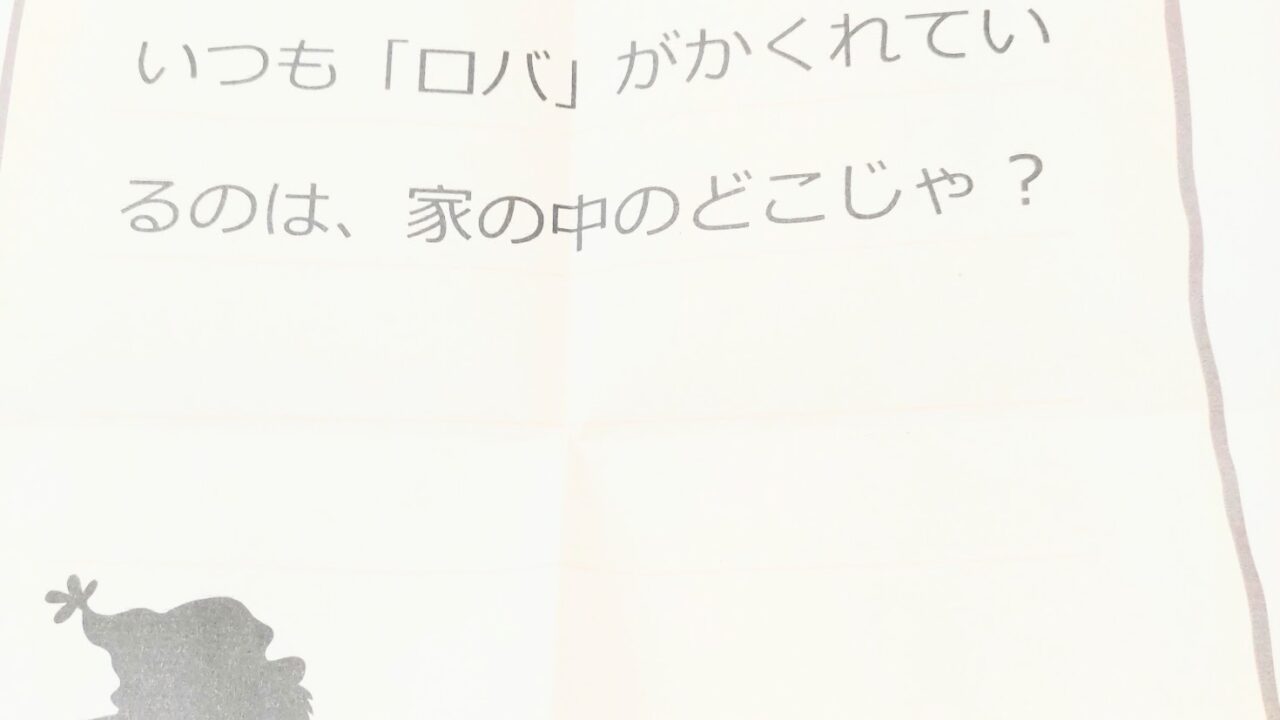 いつも「ロバ」がかくれてい
るのは、家の中のどこじゃ？